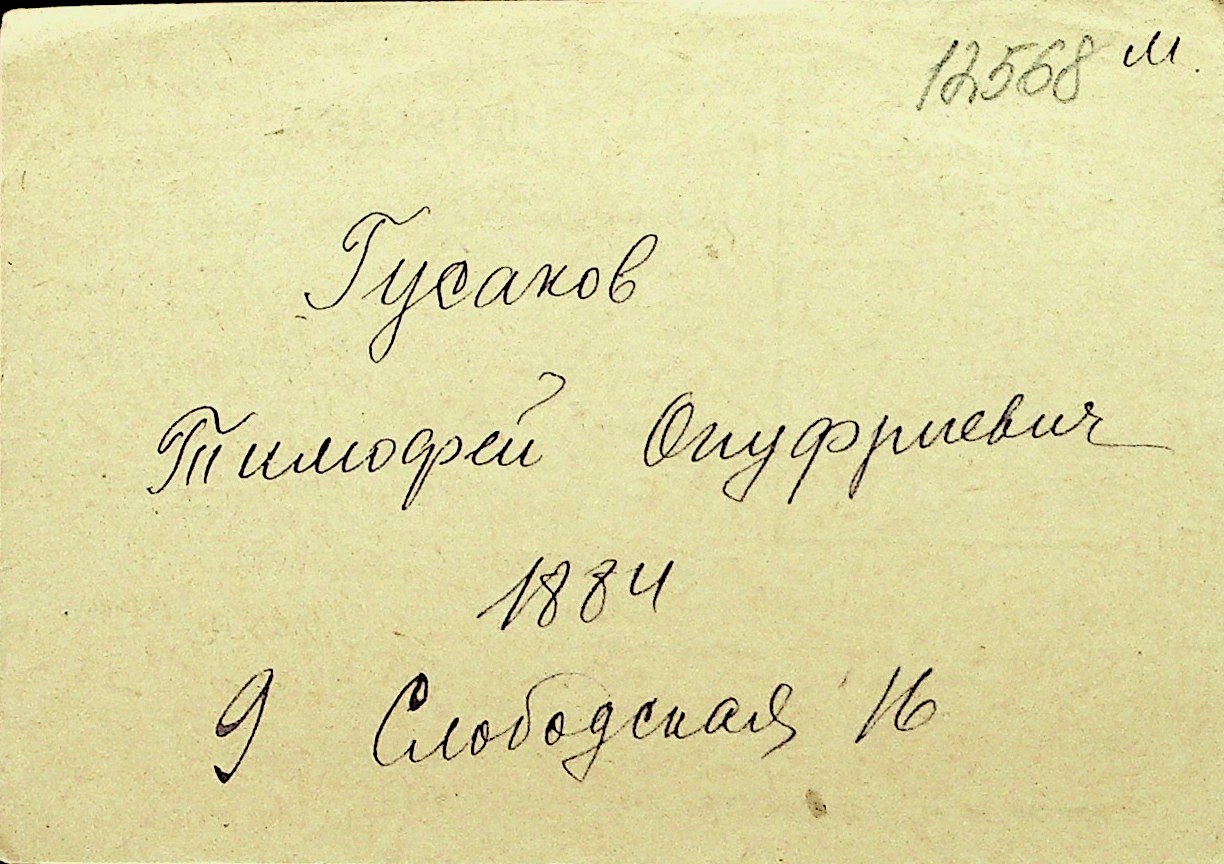 12568 м.
Гусаков
Тимофей Онуфриевич
1884
9 Слободская 16